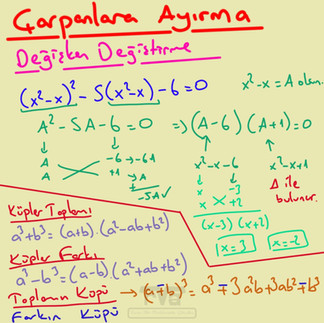 Çarpanlara Ayırma
Değişken Değiştirme
(x²-x)² - 5(x²-x) - 6 = 0
x²-x = A olsun.
A² - 5A - 6 = 0 => (A-6)(A+1) = 0
A -6 → -6A
A +1 → +A
-5A ✓
x²-x-6
x -3
x +2
(x-3)(x+2)
x=3 x=-2
x²-x+1
Δ ile
bulunur.
Küpler Toplamı
a³+b³ = (a+b).(a²-ab+b²)
Küpler Farkı
a³-b³ = (a-b)(a²+ab+b²)
Toplamın Küpü
Farkın Küpü
→ (a∓b)³ = a³ ∓ 3a²b + 3ab² ∓ b³